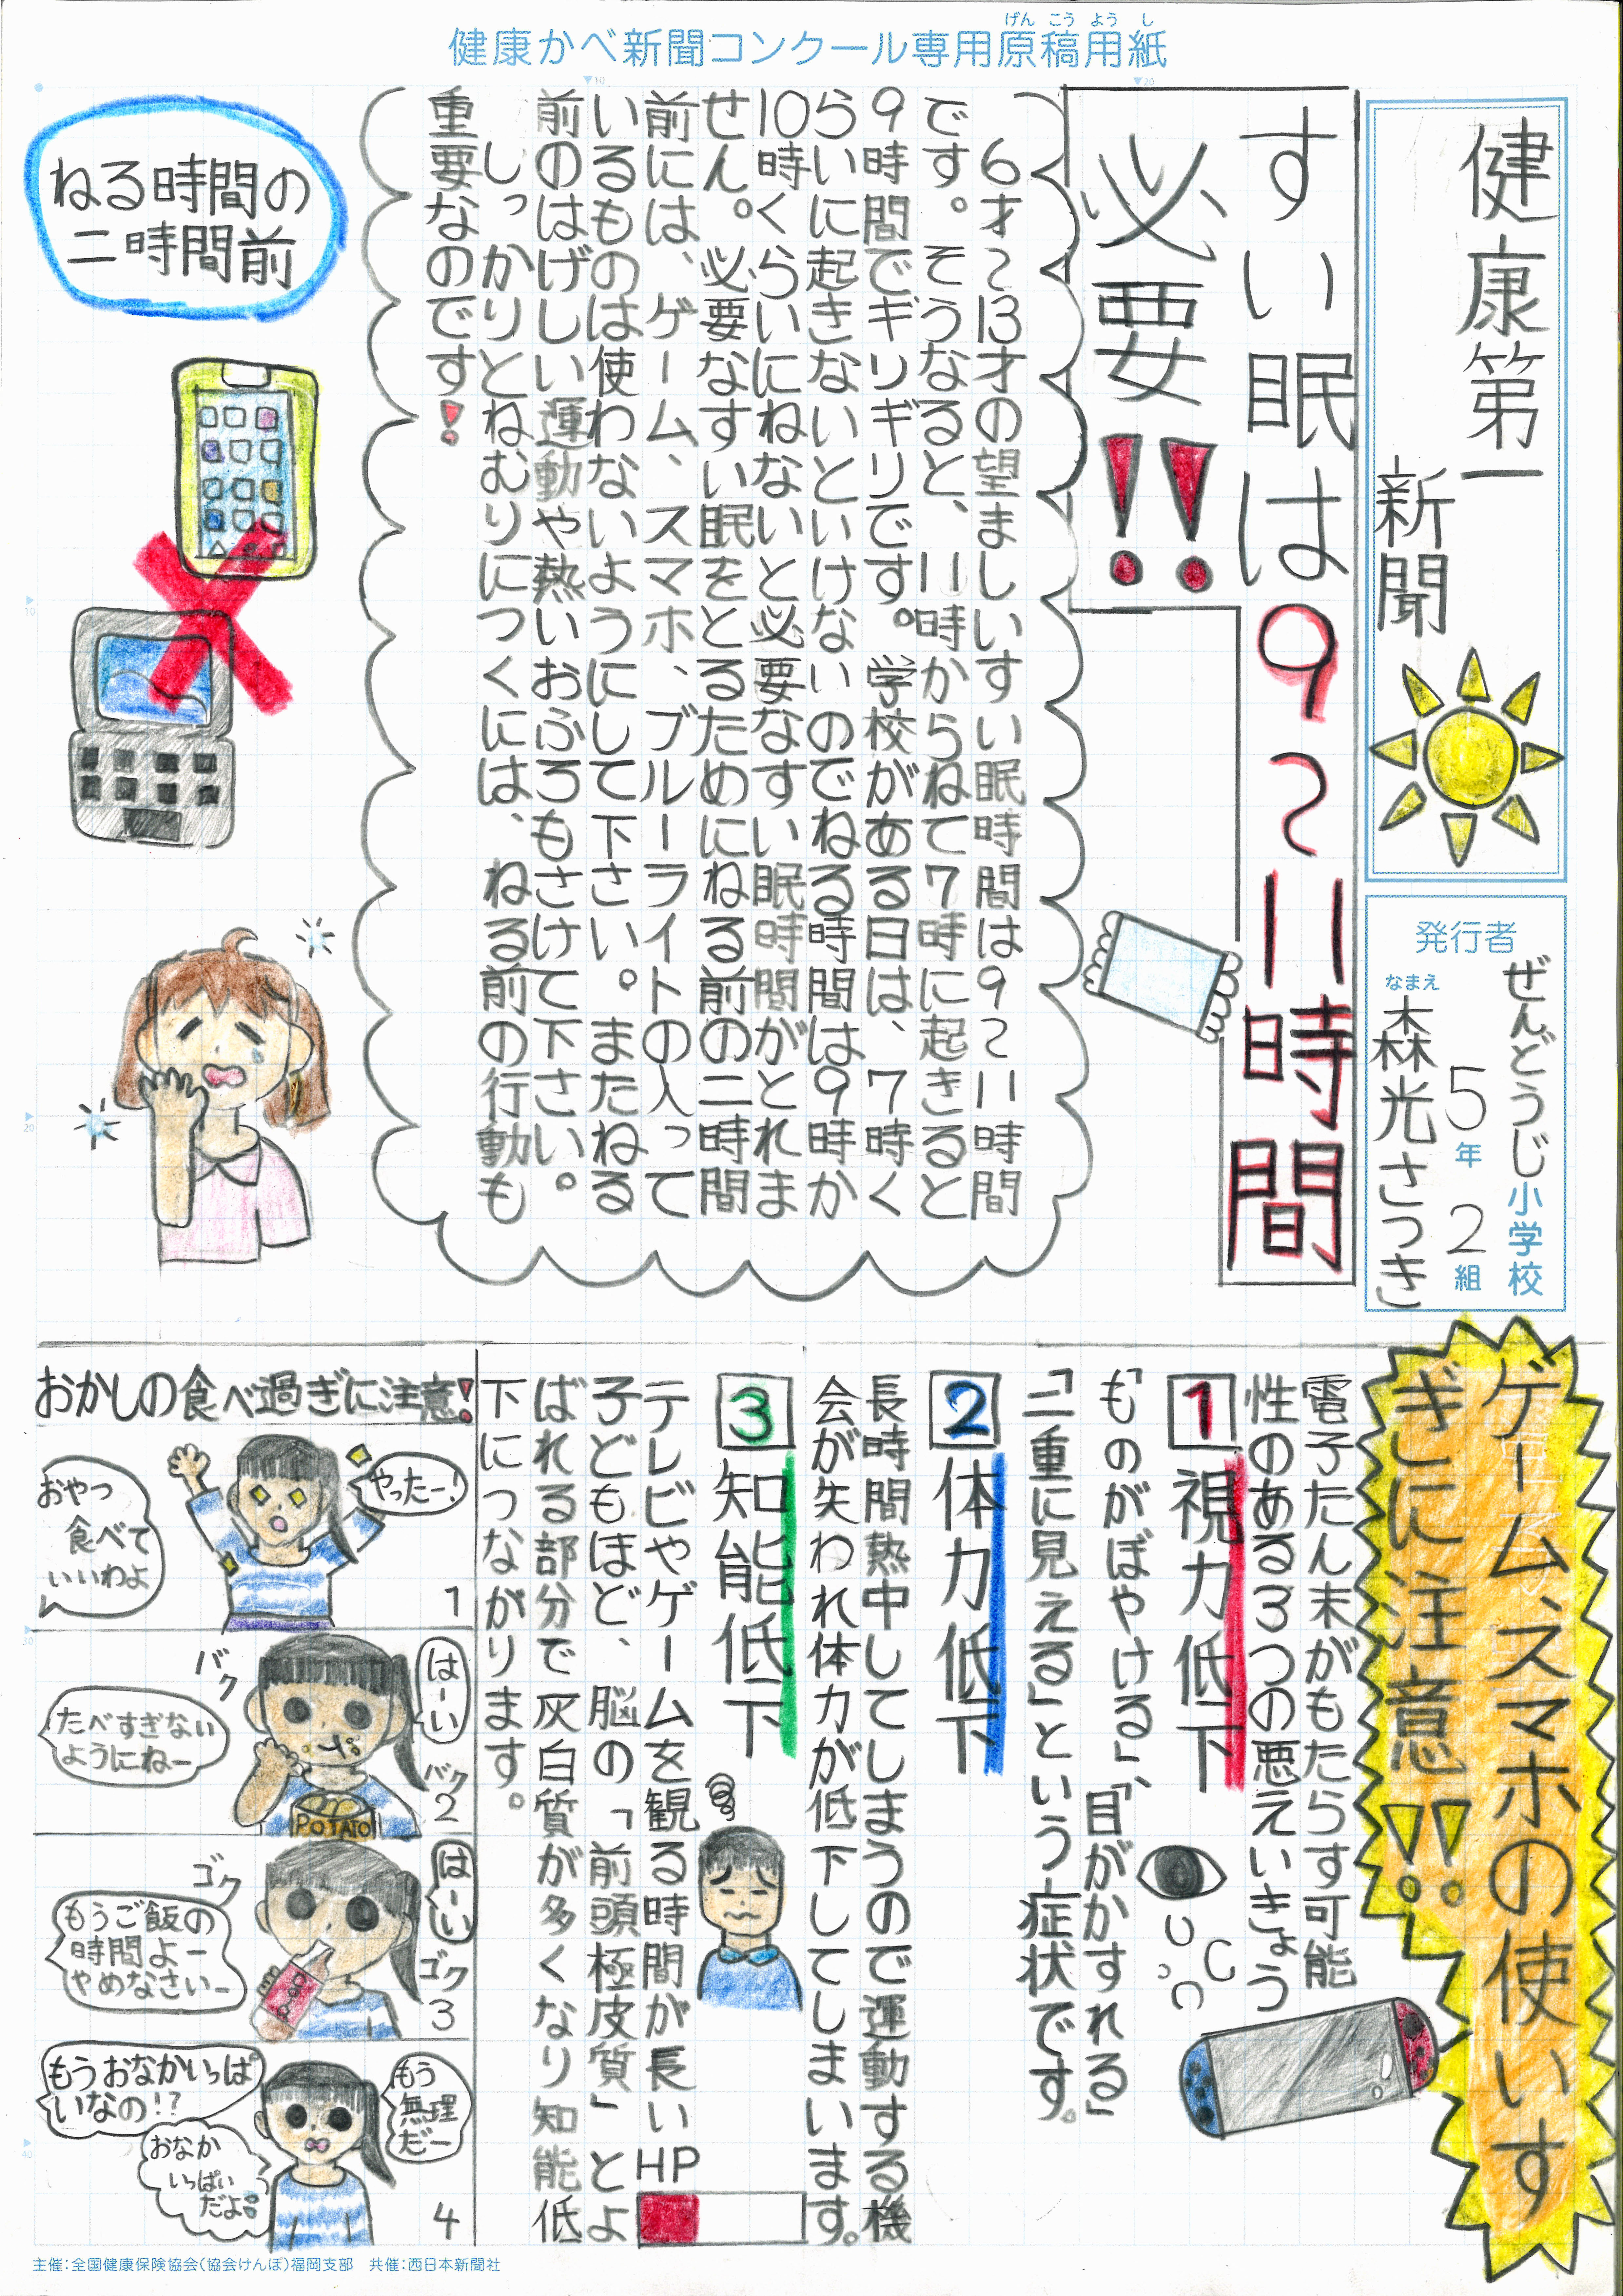 健康かべ新聞コンクール専用原稿用紙
げん こう よう し
健康第一
新聞
発行者
ぜんどうじ小学校
5年2組
なまえ
森光さつき
すい眠は9~11時間
必要!!
6才~13才の望ましいすい眠時間は9~11時間
です。そうなると、11時からねて7時に起きると
9時間でギリギリです。学校がある日は、7時く
らいに起きないといけないのでねる時間は9時か
10時くらいにねないと必要なすい眠時間がとれま
せん。必要なすい眠をとるためにねる前の二時間
前には、ゲーム、スマホ、ブルーライトの入って
いるものは使わないようにして下さい。またねる
前のはげしい運動や熱いおふろもさけて下さい。
しっかりとねむりにつくには、ねる前の行動も
重要なのです!
ねる時間の
二時間前
ゲーム、スマホの使いす
ぎに注意!!
電子たん末がもたらす可能
性のある3つの悪えいきょう
1 視力低下
「ものがぼやける」、「目がかすれる」
「二重に見える」という症状です。
2 体力低下
長時間熱中してしまうので運動する機
会が失われ体力が低下してしまいます。
3 知能低下
テレビやゲームを観る時間が長い
子どもほど、脳の「前頭極皮質」とよ
ばれる部分で灰白質が多くなり知能低
下につながります。
HP
おかしの食べ過ぎに注意!
やったー!
おやつ
食べて
いいわよ
1
はーい
バク
バク
たべすぎない
ようにねー
POTATO
2
はーい
ゴク
ゴク
もうご飯の
時間よー
やめなさいー
3
もう
無理
だー
もうおなかいっぱ
いなの!?
おなか
いっぱい
だよ。
4
主催:全国健康保険協会(協会けんぽ)福岡支部 共催:西日本新聞社